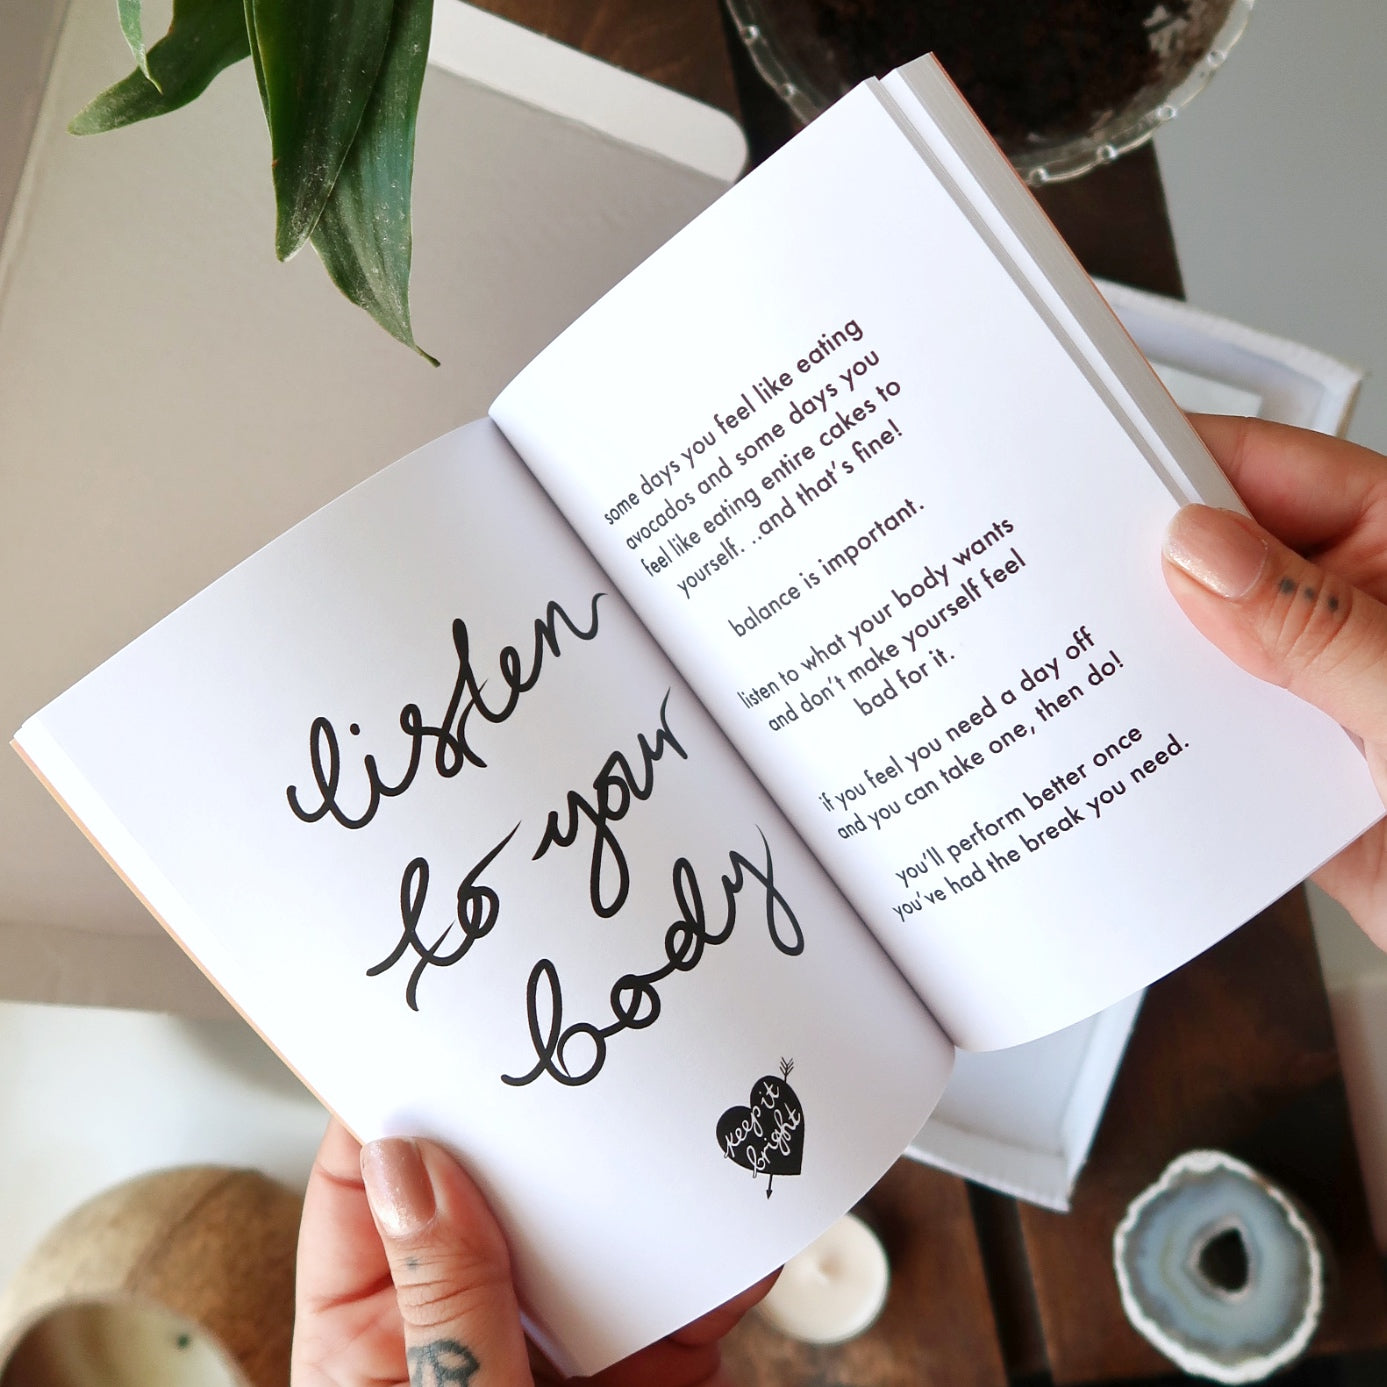 listen
to your
body
keep it
bright
some days you feel like eating
avocados and some days you
feel like eating entire cakes to
yourself. ..and that's fine!
balance is important.
listen to what your body wants
and don't make yourself feel
bad for it.
if you feel you need a day off
and you can take one, then do!
you'll perform better once
you've had the break you need.